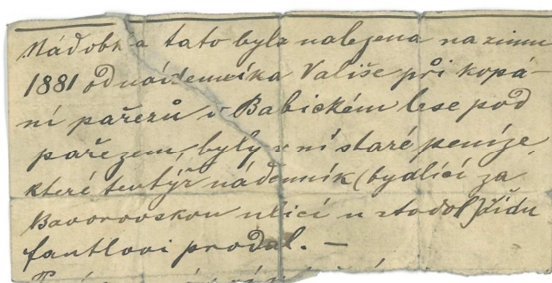 Nádobka tato byla nalezena na zimu
1881 od nádenníka Vališe při kopá-
ní pařezů v Babickém lese pod
pařezem, byly v ní staré peníze,
které tentýž nádenník (bydlící za
Bavorovskou ulicí u stodol) židu
fantlovi prodal. —